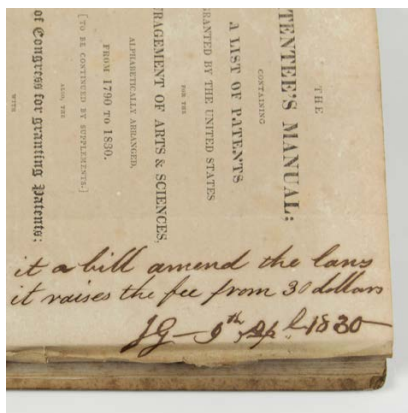 THE
TENTEE'S MANUAL:
CONTAINING
A LIST OF PATENTS
GRANTED BY THE UNITED STATES
FOR THE
RAGEMENT OF ARTS & SCIENCES,
ALPHABETICALLY ARRANGED,
FROM 1790 TO 1830.
[TO BE CONTINUED BY SUPPLEMENTS.]
ALSO, THE
of Congress for granting Patents;
WITH
it a bill amend the laws
it raises the fee from 30 dollars
JG - 9th Apl 1830